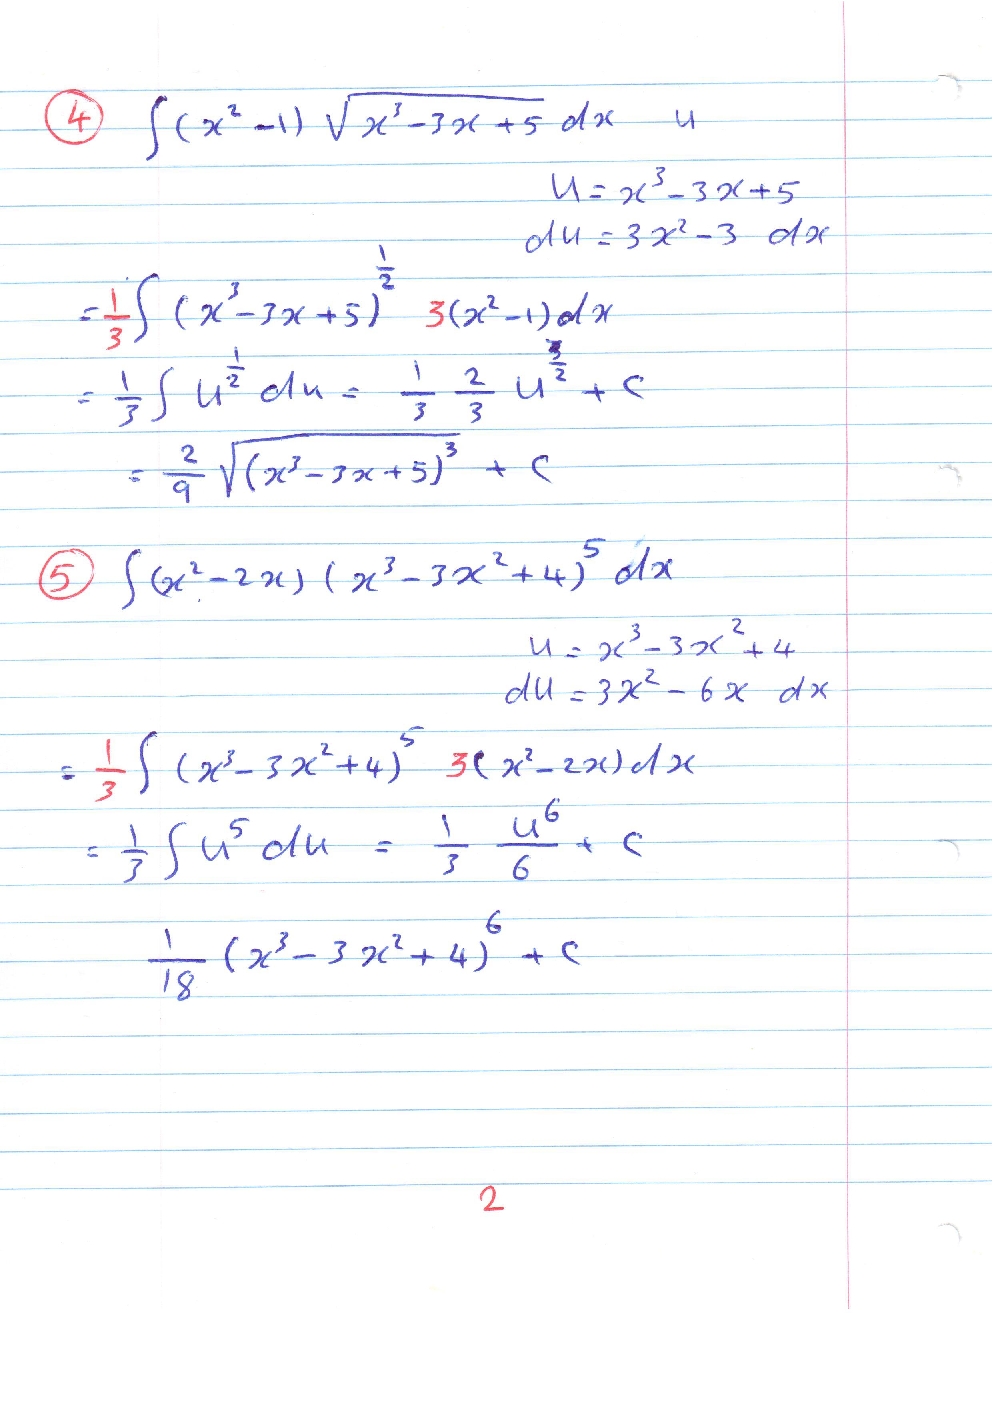 ④ ∫(x² - 1) √(x³ - 3x + 5) dx u
u = x³ - 3x + 5
du = 3x² - 3 dx
= 1/3 ∫ (x³ - 3x + 5)^(1/2) 3(x² - 1) dx
= 1/3 ∫ u^(1/2) du = 1/3 2/3 u^(3/2) + c
= 2/9 √((x³ - 3x + 5)³) + c
⑤ ∫(x² - 2x) (x³ - 3x² + 4)⁵ dx
u = x³ - 3x² + 4
du = 3x² - 6x dx
= 1/3 ∫ (x³ - 3x² + 4)⁵ 3(x² - 2x) dx
= 1/3 ∫ u⁵ du = 1/3 u⁶/6 + c
1/18 (x³ - 3x² + 4)⁶ + c
2